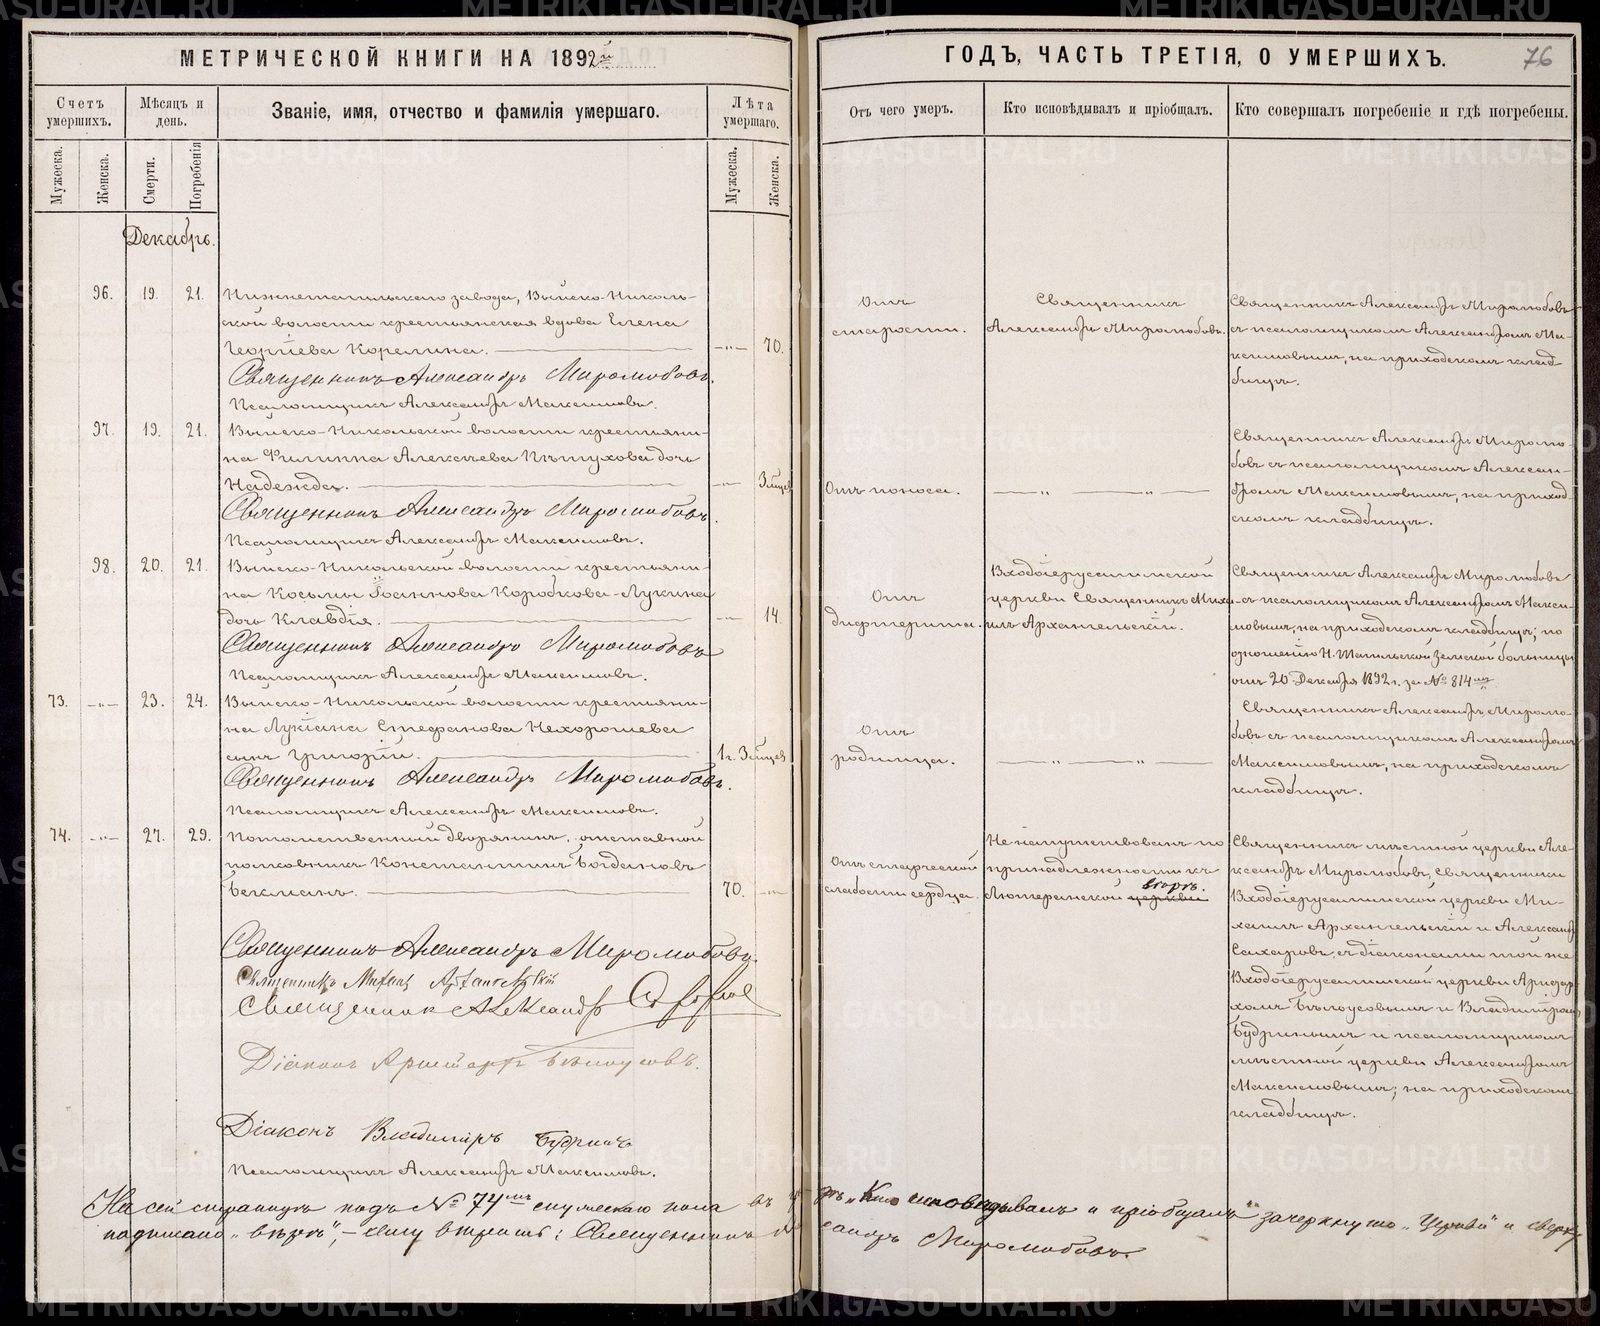 МЕТРИЧЕСКОЙ КНИГИ НА 1892й
ГОДЪ, ЧАСТЬ ТРЕТІЯ, О УМЕРШИХЪ.
76
Счетъ умершихъ.
Мѣсяцъ и день.
Званіе, имя, отчество и фамилія умершаго.
Лѣта умершаго.
Отъ чего умеръ.
Кто исповѣдывалъ и пріобщалъ.
Кто совершалъ погребеніе и гдѣ погребены.
Мужеска.
Женска.
Смерти.
Погребенія
Мужеска.
Женска.
Декабрь.
96. 19. 21.
Нижнетагильскаго завода, Выйско-Николь-
ской волости крестьянская вдова Елена
Георгіева Корелина.
-"- 70.
Священникъ Александръ Миролюбовъ.
Псаломщикъ Александръ Максимовъ.
Отъ
старости.
Священникъ
Александръ Миролюбовъ.
Священникъ Александръ Миролюбовъ
съ псаломщикомъ Александромъ Ма-
ксимовымъ, на приходскомъ клад-
бищѣ.
97. 19. 21.
Выйско-Никольской волости крестьяни-
на Филиппа Алексѣева Пѣтухова дочь
Надежда.
-"- 3 мѣсяц.
Священникъ Александръ Миролюбовъ.
Псаломщикъ Александръ Максимовъ.
Отъ поноса.
—"— —"—
Священникъ Александръ Миролю-
бовъ съ псаломщикомъ Алексан-
дромъ Максимовымъ, на приход-
скомъ кладбищѣ.
98. 20. 21.
Выйско-Никольской волости крестьяни-
на Косьмы Іоаннова Коробкова-Лукина
дочь Клавдія.
-"- 14.
Священникъ Александръ Миролюбовъ
Псаломщикъ Александръ Максимовъ.
Отъ
дифтерита.
Входоіерусалимской
церкви Священникъ Миха-
илъ Архангельскій.
Священникъ Александръ Миролюбовъ
съ псаломщикомъ Александромъ Макси-
мовымъ, на приходскомъ кладбищѣ; по
отношенію Н. Тагильской Земской больницы
отъ 20 Декабря 1892 г. за № 814мъ
73. -"- 23. 24.
Выйско-Никольской волости крестьяни-
на Лукіана Стефанова Нехорошева
сынъ Григорій.
1 г. 3 мѣсяц.
Священникъ Александръ Миролюбовъ.
Псаломщикъ Александръ Максимовъ.
Отъ
родимца.
—"— —"—
Священникъ Александръ Миролю-
бовъ съ псаломщикомъ Александромъ
Максимовымъ, на приходскомъ
кладбищѣ.
74. -"- 27. 29.
Потомственный дворянинъ, отставной
полковникъ Константинъ Богдановъ
Бекманъ.
70. -"-
Отъ старческой
слабости сердца.
Не напутствованъ по
принадлежности къ
Лютеранской церкви вѣрѣ.
Священникъ мѣстной церкви Але-
ксандръ Миролюбовъ, священники
Входоіерусалимской церкви Ми-
хаилъ Архангельскій и Александръ
Сахаровъ, съ діаконами той же
Входоіерусалимской церкви Аристар-
хомъ Бѣлоусовымъ и Владиміромъ
Будринымъ и псаломщикомъ
мѣстной церкви Александромъ
Максимовымъ; на приходскомъ
кладбищѣ.
Священникъ Александръ Миролюбовъ.
Священникъ Михаилъ Архангельскій
Священникъ Александръ Сахаровъ
Діаконъ Аристархъ Бѣлоусовъ.
Діаконъ Владиміръ Будринъ
Псаломщикъ Александръ Максимовъ.
На сей страницѣ подъ № 74мъ мужескаго пола въ графѣ „Кто исповѣдывалъ и пріобщалъ" зачеркнуто „церкви" и сверху
надписано „вѣрѣ", – сему вѣрить: Священникъ Александръ Миролюбовъ.
METRIKI.GASO-URAL.RU